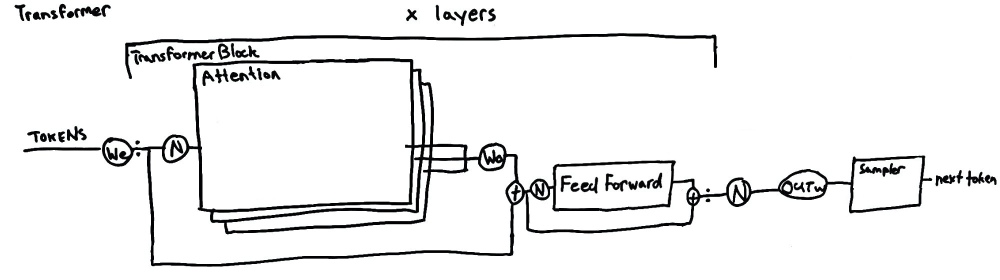 Transformer
x layers
Transformer Block
Attention
TOKENS
We
N
Wo
+
N
Feed Forward
+
N
OUTW
Sampler
next token